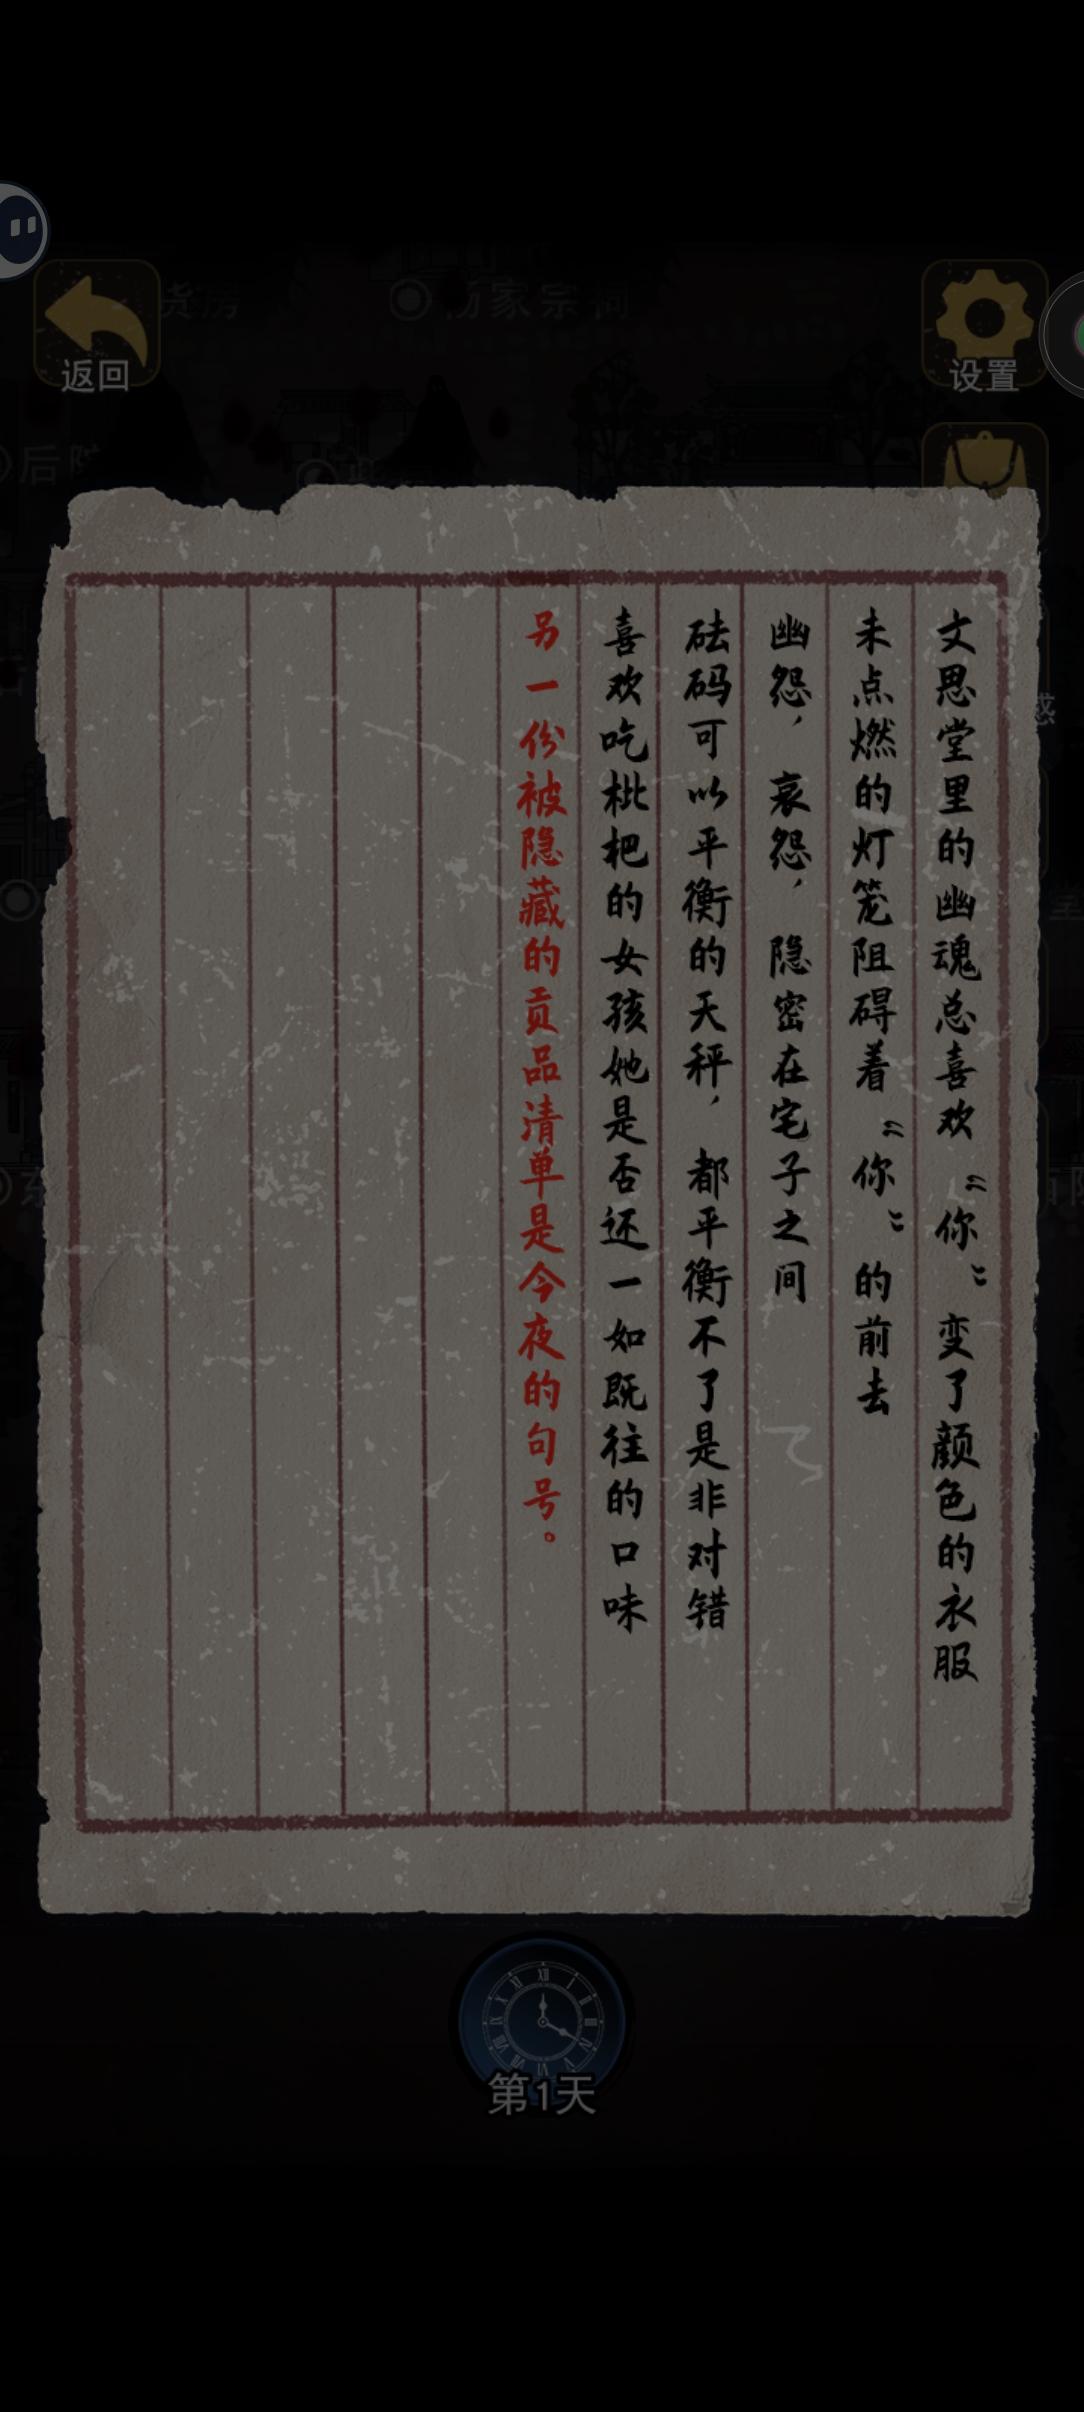 货房
万家宗祠
返回
设置
后院
文思堂里的幽魂总喜欢“你”变了颜色的衣服
未点燃的灯笼阻碍着“你”的前去
幽怨，哀怨，隐密在宅子之间
砝码可以平衡的天秤，都平衡不了是非对错
喜欢吃枇杷的女孩她是否还一如既往的口味
另一份被隐藏的贡品清单是今夜的句号。
第1天